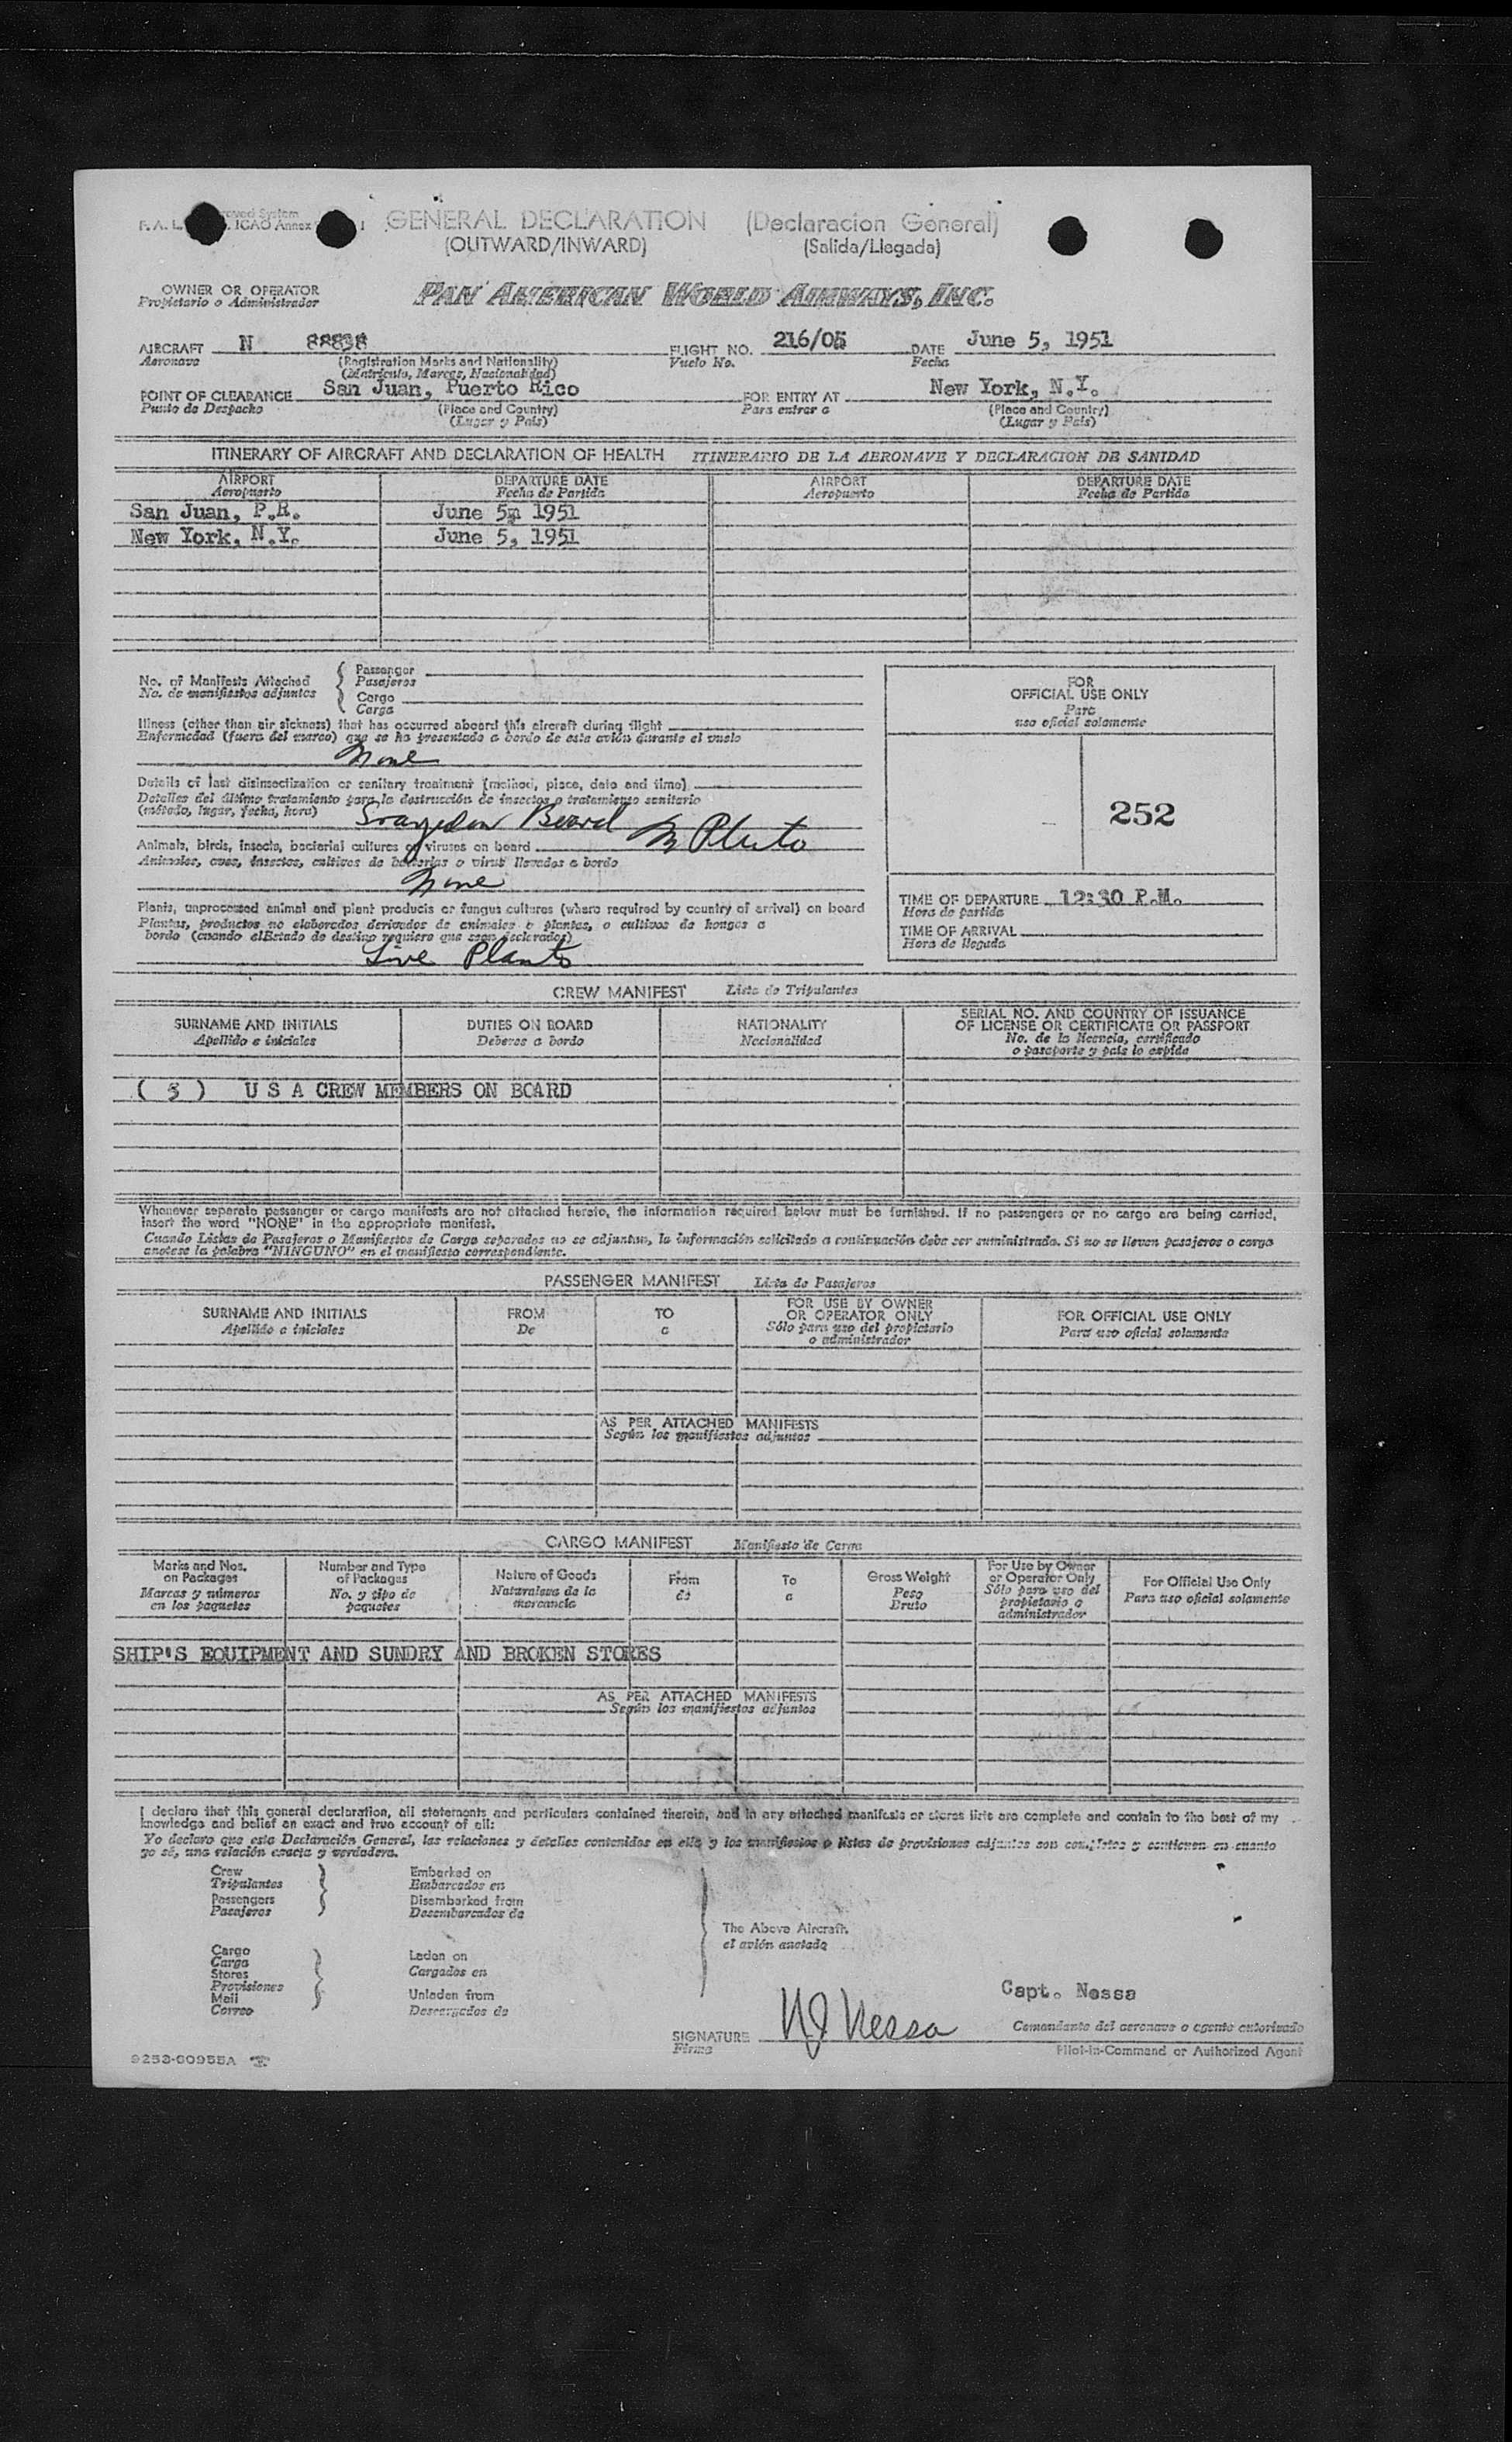 GENERAL DECLARATION (Declaracion General)
F.A.L. ICAO Annex
(OUTWARD/INWARD) (Salida/Llegada)
OWNER OR OPERATOR
Propietario o Administrador
PAN AMERICAN WORLD AIRWAYS, INC.
AIRCRAFT N 88838 FLIGHT NO. 216/05 DATE June 5, 1951
Aeronave (Registration Marks and Nationality) Vuelo No. Fecha
(Matrícula, Marcas, Nacionalidad)
POINT OF CLEARANCE San Juan, Puerto Rico FOR ENTRY AT New York, N.Y.
Punto de Despacho (Place and Country) Para entrar a (Place and Country)
(Lugar y País) (Lugar y País)
ITINERARY OF AIRCRAFT AND DECLARATION OF HEALTH ITINERARIO DE LA AERONAVE Y DECLARACION DE SANIDAD
AIRPORT DEPARTURE DATE AIRPORT DEPARTURE DATE
Aeropuerto Fecha de Partida Aeropuerto Fecha de Partida
San Juan, P.R. June 5, 1951
New York, N.Y. June 5, 1951
No. of Manifests Attached
No. de manifiestos adjuntos
Passenger
Pasajeros
Cargo
Carga
Illness (other than air sickness) that has occurred aboard this aircraft during flight
Enfermedad (fuera del mareo) que se ha presentado a bordo de este avión durante el vuelo
None
Details of last disinsectization or sanitary treatment (method, place, date and time)
Detalles del último tratamiento para la destrucción de insectos o tratamiento sanitario
(método, lugar, fecha, hora)
Animals, birds, insects, bacterial cultures or viruses on board
Animales, aves, insectos, cultivos de bacterias o virus llevados a bordo
None
Plants, unprocessed animal and plant products or fungus cultures (where required by country of arrival) on board
Plantas, productos no elaborados derivados de animales o plantas, o cultivos de hongos a
bordo (cuando el Estado de destino requiere que sean declarados)
Live Plants
FOR
OFFICIAL USE ONLY
Para
uso oficial solamente
252
TIME OF DEPARTURE 12:30 P.M.
Hora de partida
TIME OF ARRIVAL
Hora de llegada
CREW MANIFEST Lista de Tripulantes
SURNAME AND INITIALS DUTIES ON BOARD NATIONALITY SERIAL NO. AND COUNTRY OF ISSUANCE
OF LICENSE OR CERTIFICATE OR PASSPORT
Apellido e iniciales Deberes a bordo Nacionalidad No. de la licencia, certificado
o pasaporte y país lo expide
( 3 ) U S A CREW MEMBERS ON BOARD
Whenever separate passenger or cargo manifests are not attached hereto, the information required below must be furnished. If no passengers or no cargo are being carried,
insert the word "NONE" in the appropriate manifest.
Cuando Listas de Pasajeros o Manifiestos de Carga separados no se adjuntan, la información solicitada a continuación debe ser suministrada. Si no se lleven pasajeros o carga
anotese la palabra "NINGUNO" en el manifiesto correspondiente.
PASSENGER MANIFEST Lista de Pasajeros
SURNAME AND INITIALS FROM TO FOR USE BY OWNER
OR OPERATOR ONLY FOR OFFICIAL USE ONLY
Apellido e iniciales De a Sólo para uso del propietario
o administrador Para uso oficial solamente
AS PER ATTACHED MANIFESTS
Según los manifiestos adjuntos
CARGO MANIFEST Manifiesto de Carga
Marks and Nos.
on Packages
Marcas y números
en los paquetes
Number and Type
of Packages
No. y tipo de
paquetes
Nature of Goods
Naturaleza de la
mercancía
From
de
To
a
Gross Weight
Peso
Bruto
For Use by Owner
or Operator Only
Sólo para uso del
propietario o
administrador
For Official Use Only
Para uso oficial solamente
SHIP'S EQUIPMENT AND SUNDRY AND BROKEN STORES
AS PER ATTACHED MANIFESTS
Según los manifiestos adjuntos
I declare that this general declaration, all statements and particulars contained therein, and in any attached manifests or stores lists are complete and contain to the best of my
knowledge and belief an exact and true account of all:
Yo declaro que esta Declaración General, las relaciones y detalles contenidos en ella y los manifiestos o listas de provisiones adjuntas son completos y contienen en cuanto
yo sé, una relación exacta y verdadera.
Crew
Tripulantes
Passengers
Pasajeros
Embarked on
Embarcados en
Disembarked from
Desembarcados de
The Above Aircraft.
el avión anotado
Cargo
Carga
Stores
Provisiones
Mail
Correo
Laden on
Cargados en
Unladen from
Descargados de
Capt. Nossa
SIGNATURE NJ Nessa Comandante del aeronave o agente autorizado
Firma Pilot-in-Command or Authorized Agent
9253-00955A